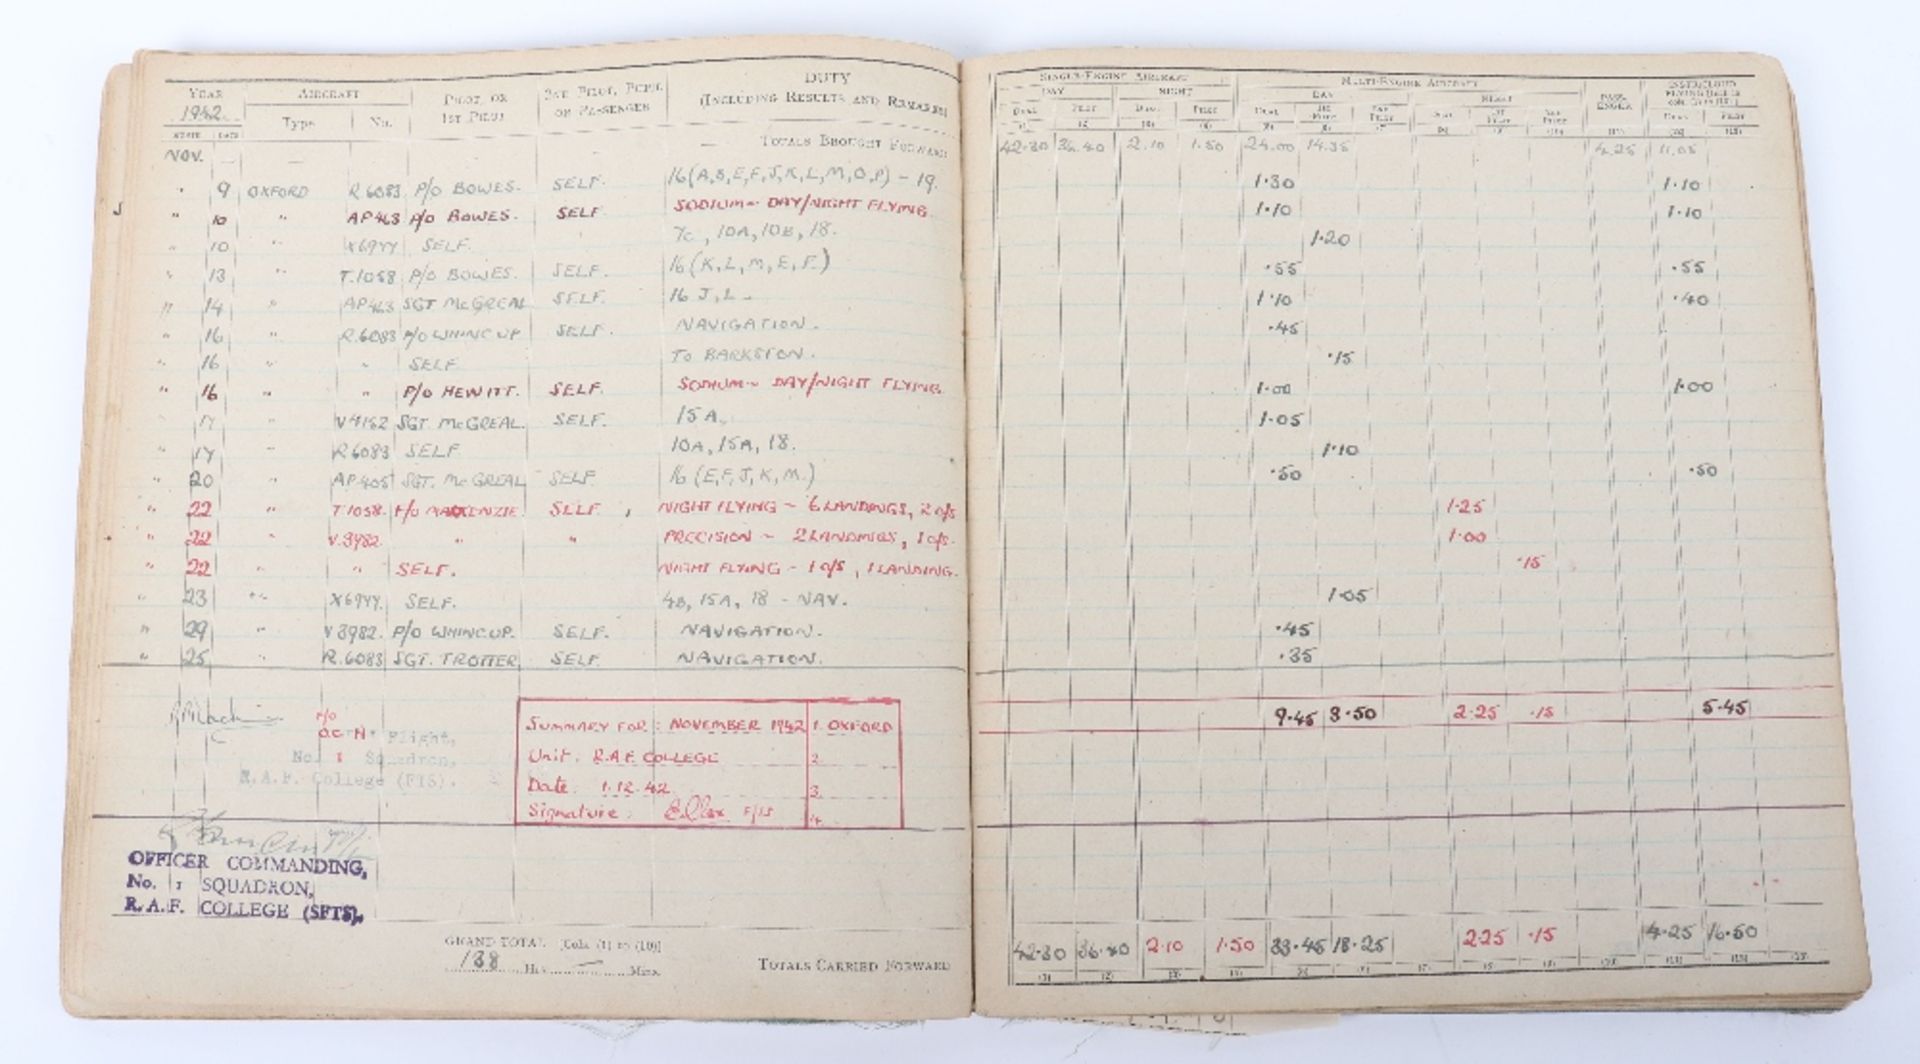 YEAR AIRCRAFT PILOT, OR 1ST PILOT 2ND PILOT, PUPIL OR PASSENGER DUTY (INCLUDING RESULTS AND REMARKS)
1942. Type No.
MONTH DATE
NOV. — — — — — TOTALS BROUGHT FORWARD
" 9 OXFORD R6083 P/O BOWES. SELF. 16(A,B,E,F,J,K,L,M,O,P) - 19.
" 10 " AP463 P/O BOWES. SELF. SODIUM ~ DAY/NIGHT FLYING.
" 10 " X6977 SELF. 7c, 10A, 10B, 18.
" 13 " T.1058 P/O BOWES. SELF. 16(K,L,M,E,F.)
" 14 " AP463 SGT McGREAL SELF. 16 J,L.
" 16 " R.6083 P/O WHINCUP SELF. NAVIGATION.
" 16 " " SELF. TO BARKSTON.
" 16 " " P/O HEWITT. SELF. SODIUM ~ DAY/NIGHT FLYING.
" 17 " V4162 SGT. McGREAL. SELF. 15A.
" 17 " R.6083 SELF. 10A, 15A, 18.
" 20 " AP405 SGT. McGREAL SELF. 16(E,F,J,K,M.)
" 22 " T.1058. F/O MACKENZIE. SELF. NIGHT FLYING ~ 6 LANDINGS, 2 o/s
" 22 " V.3982 " " PRECISION ~ 2 LANDINGS, 1 o/s.
" 22 " " SELF. NIGHT FLYING - 1 o/s, 1 LANDING.
" 23 " X6977. SELF. 4B, 15A, 18 - NAV.
" 29 " V3982. P/O WHINCUP. SELF. NAVIGATION.
" 25 " R.6083 SGT. TROTTER SELF. NAVIGATION.
F/O
O.C. Flight,
No. 1 Squadron,
R.A.F. College (FTS).
SUMMARY FOR: NOVEMBER 1942 1. OXFORD
Unit: R.A.F. COLLEGE 2.
Date: 1.12.42. 3.
Signature: 4.
OFFICER COMMANDING,
No. 1 SQUADRON,
R.A.F. COLLEGE (SFTS),
GRAND TOTAL [Cols. (1) to (10)]
138 Hrs. — Mins. TOTALS CARRIED FORWARD
SINGLE-ENGINE AIRCRAFT MULTI-ENGINE AIRCRAFT PASSENGER INSTR/CLOUD FLYING
DAY NIGHT DAY NIGHT
DUAL PILOT DUAL PILOT DUAL 1ST PILOT 2ND PILOT DUAL 1ST PILOT 2ND PILOT DUAL PILOT
(1) (2) (3) (4) (5) (6) (7) (8) (9) (10) (11) (12) (13)
42.30 36.40 2.10 1.50 24.00 14.35 4.25 11.05
1.30 1.10
1.10 1.10
1.20
.55 .55
1.10 .40
.45
.15
1.00 1.00
1.05
1.10
.50 .50
1.25
1.00
.15
1.05
.45
.35
9.45 3.50 2.25 .15 5.45
42.30 36.40 2.10 1.50 33.45 18.25 2.25 .15 4.25 16.50